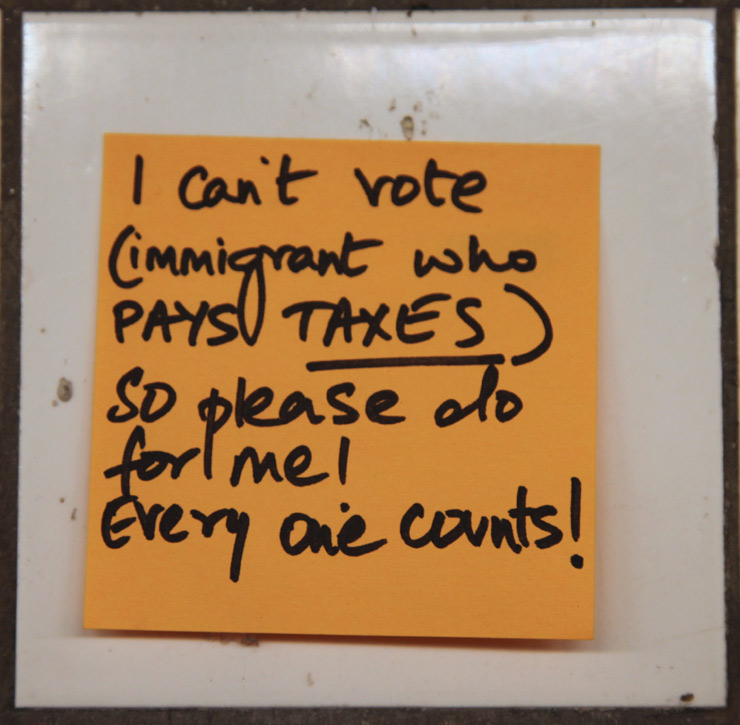 I can't vote
(immigrant who
PAYS TAXES)
SO please do
for me!
Every one counts!